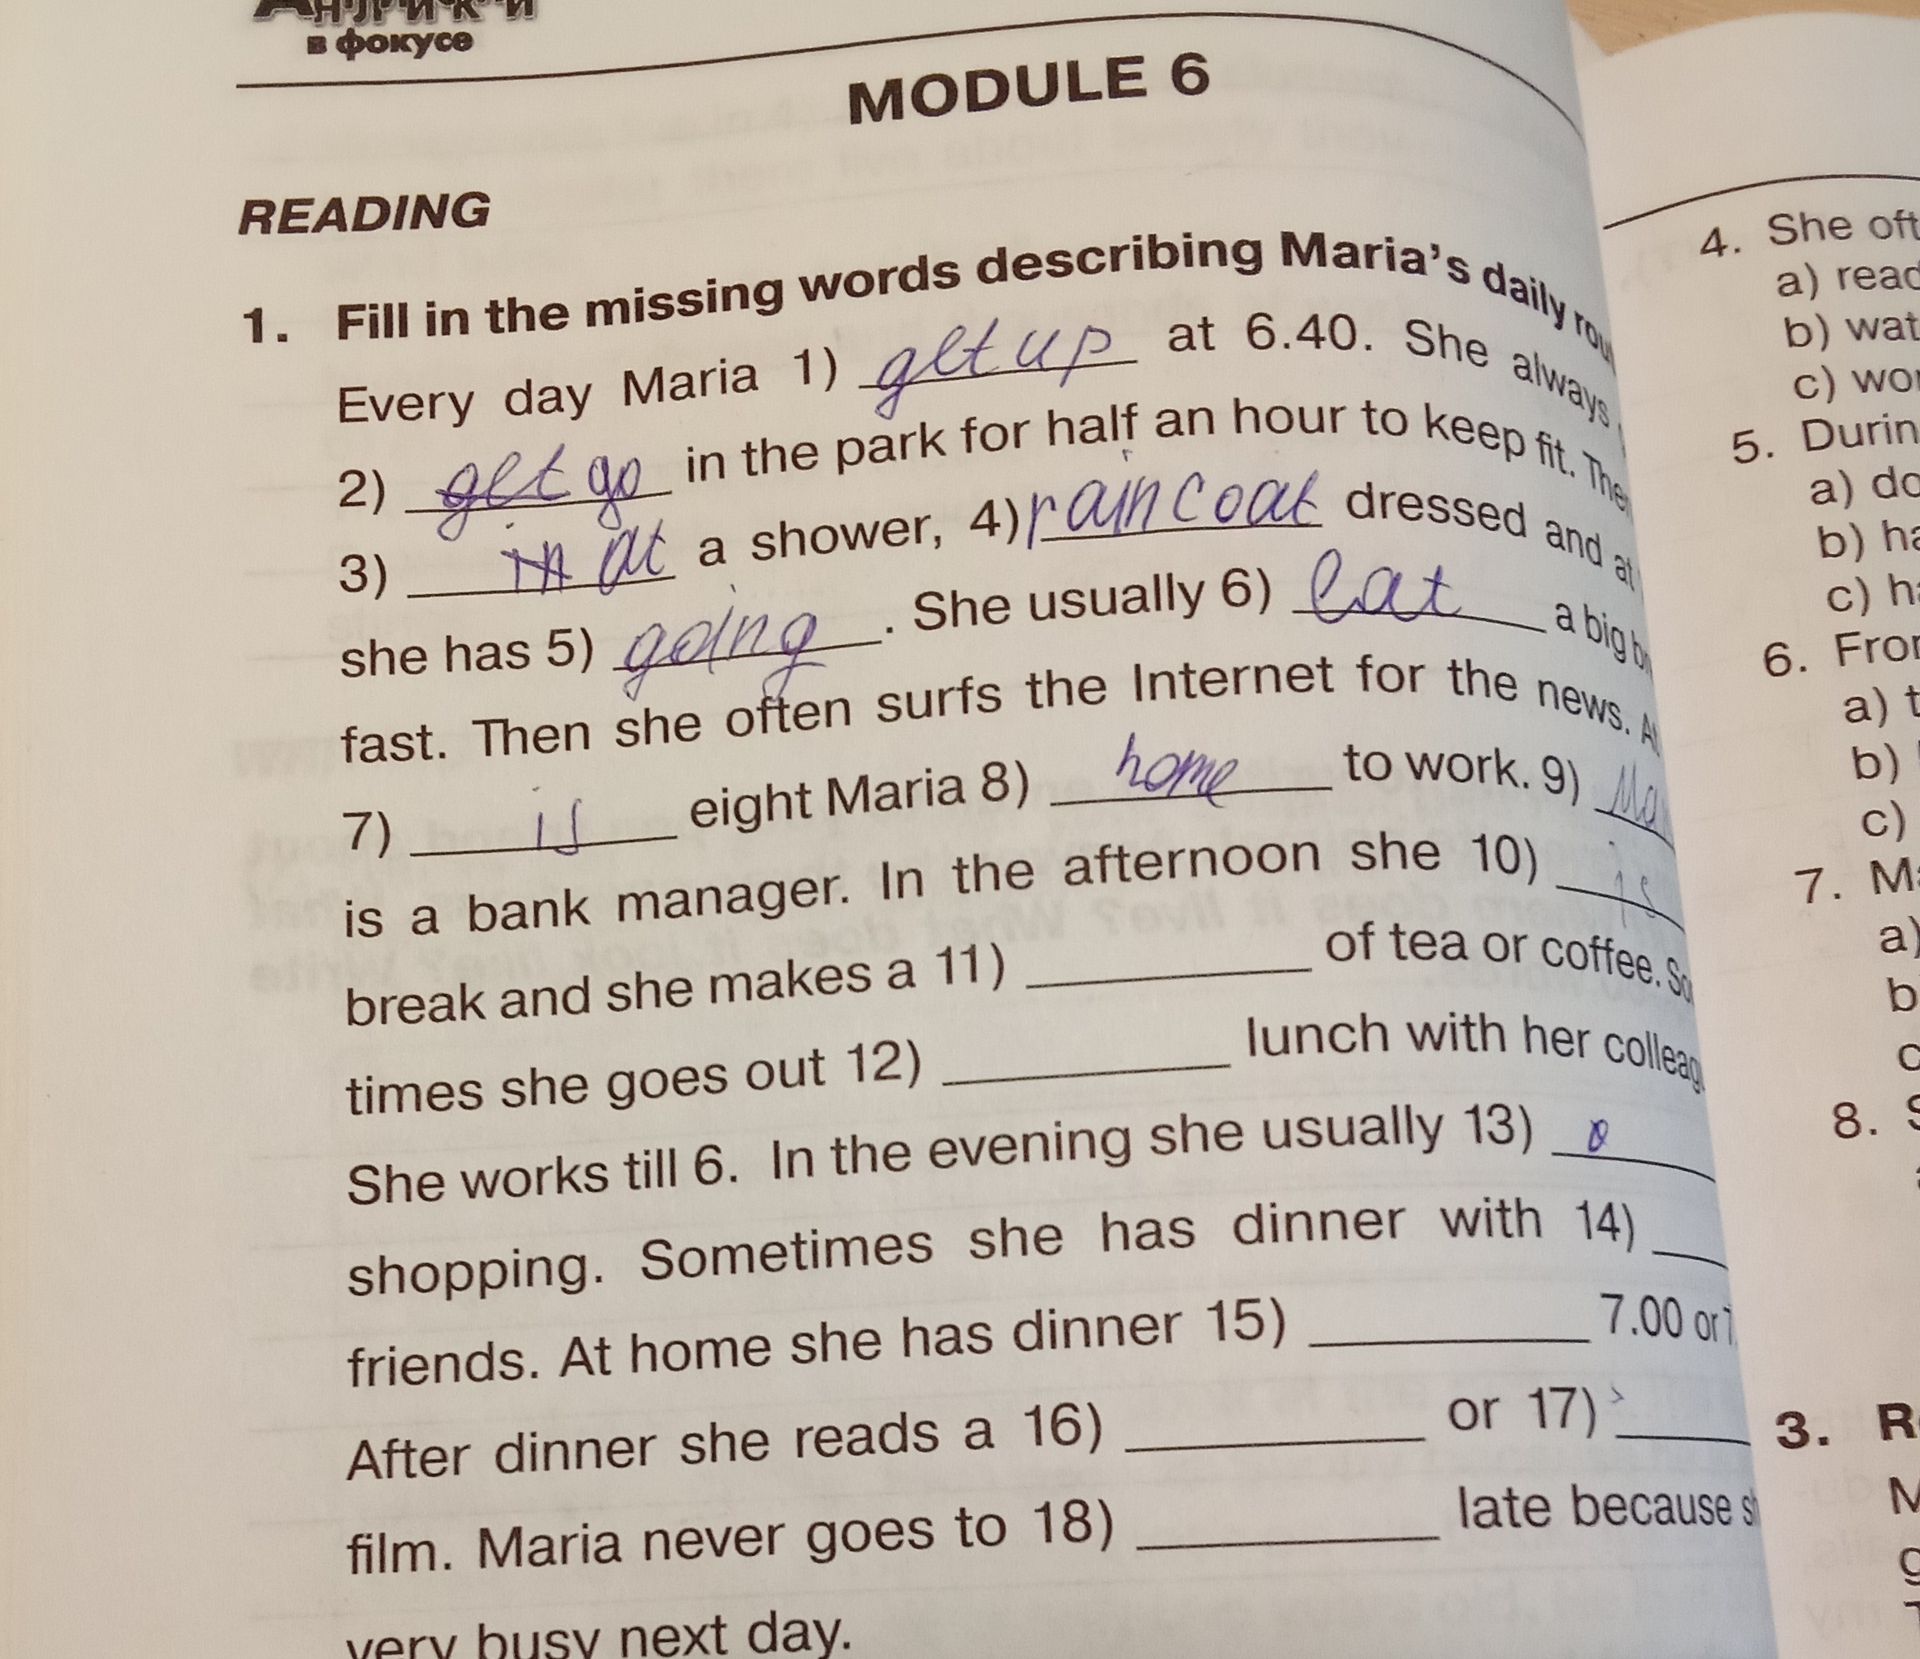 в фокусе
MODULE 6
READING
1. Fill in the missing words describing Maria's daily
Every day Maria 1) get up at 6.40. She always
2) get go in the park for half an hour to keep fit. Then
3) in at a shower, 4) raincoat dressed and at
she has 5) going . She usually 6) eat a big
fast. Then she often surfs the Internet for the news. At
7) is eight Maria 8) home to work. 9) Ma
is a bank manager. In the afternoon she 10) is
break and she makes a 11) ________ of tea or coffee. So
times she goes out 12) ________ lunch with her colleag
She works till 6. In the evening she usually 13)
shopping. Sometimes she has dinner with 14) ____
friends. At home she has dinner 15) ________ 7.00 or
After dinner she reads a 16) ________ or 17) ____
film. Maria never goes to 18) ________ late because s
very busy next day.
4. She oft
a) read
b) wat
c) wor
5. Durin
a) do
b) ha
c) ha
6. From
a) t
b)
c)
7. Ma
a)
b
c
8. S
3. R
M